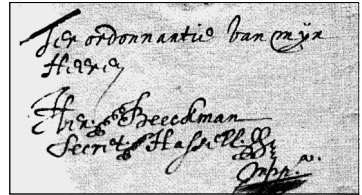 Ter ordonnantie van mijn
Heeren
Hen: Beeckman
Secret: Hasselt
mpp.